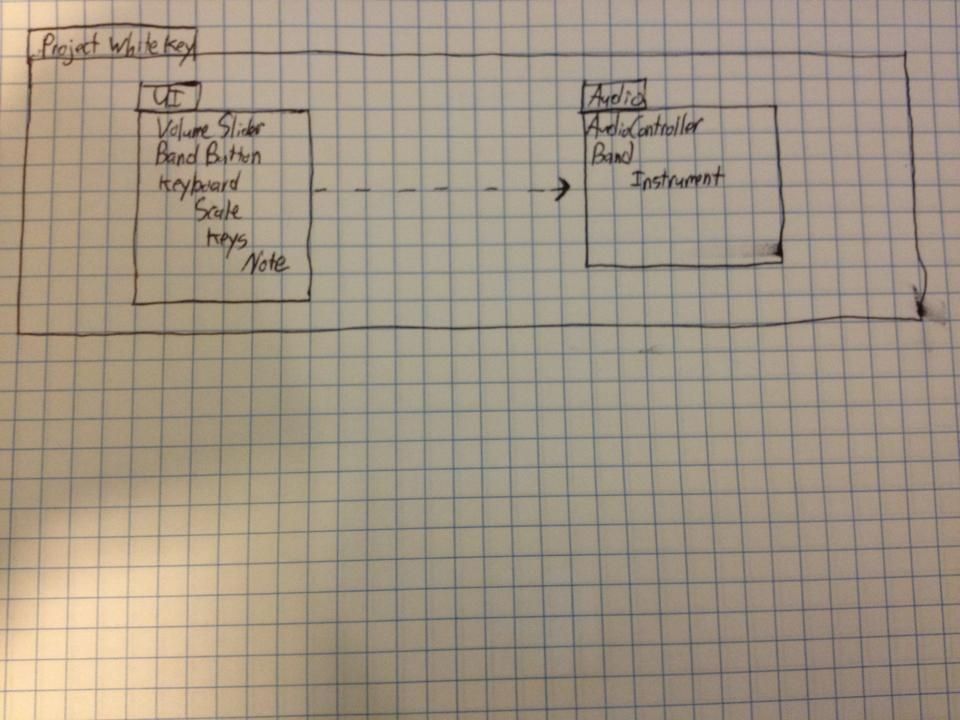 Project White Key
UI
Volume Slider
Band Button
Keyboard
Scale
Keys
Note
Audio
AudioController
Band
Instrument